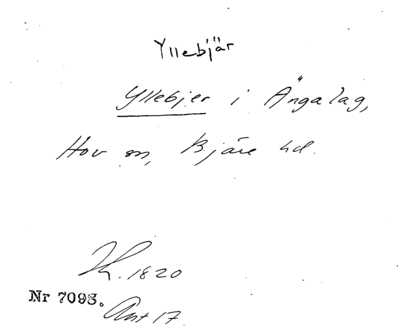 Yllebjär
Yllebjer i Ängalag,
Hov sn, Bjäre hd.
Lk. 1820
Nr 7093.
Ant 17